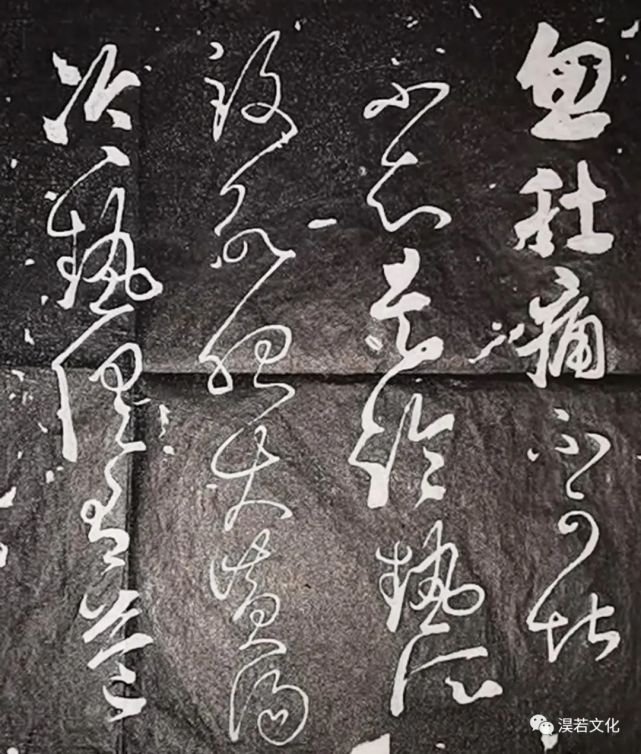 忽肚痛不可堪
不知是冷熱所
致欲服大黄湯
冷熱俱有益
淏若文化